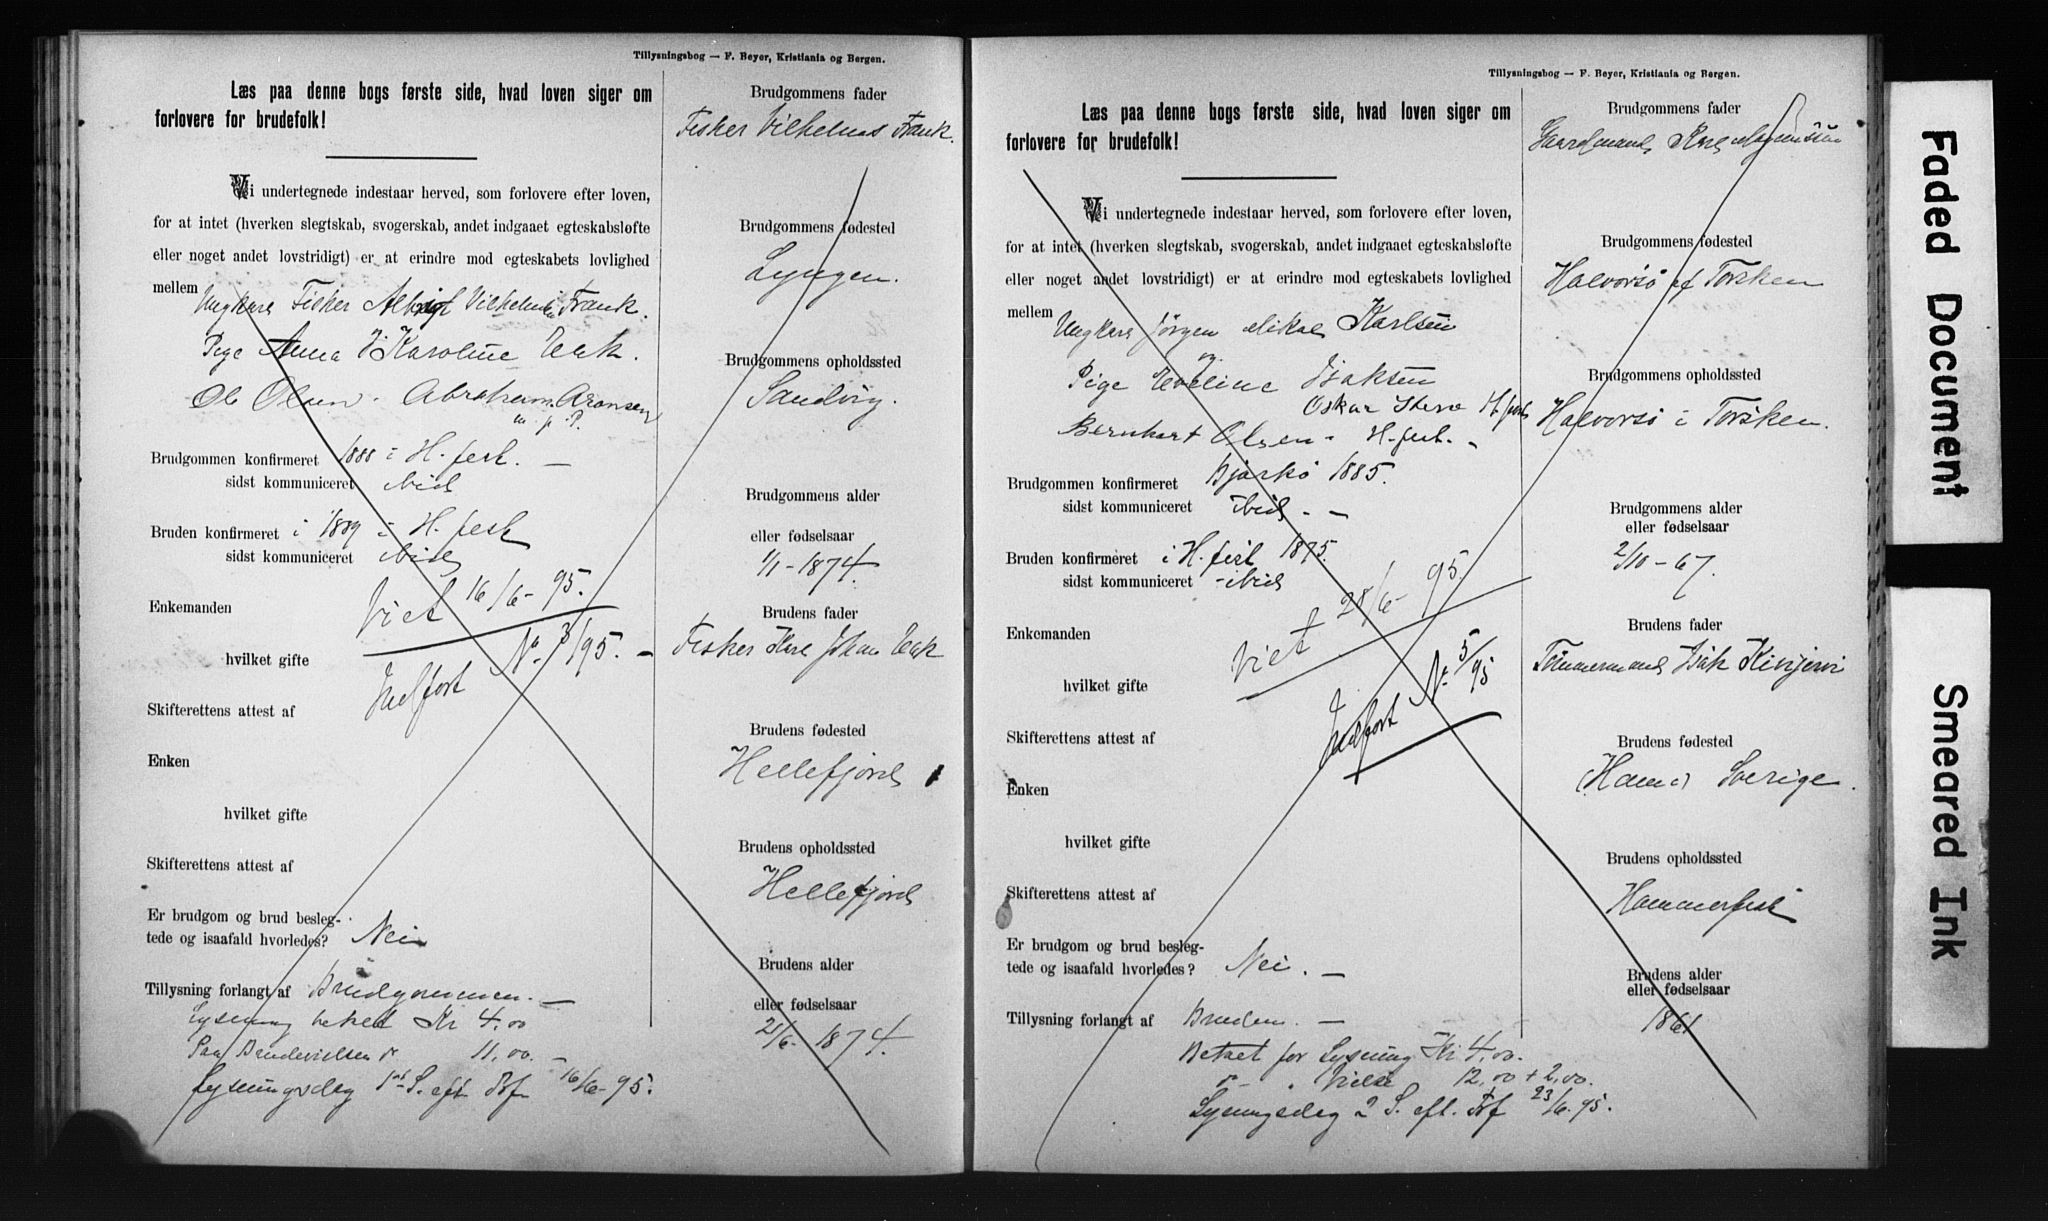 Tillysningsbog — F. Beyer, Kristiania og Bergen.
Læs paa denne bogs første side, hvad loven siger om
forlovere for brudefolk!
Vi undertegnede indestaar herved, som forlovere efter loven,
for at intet (hverken slegtskab, svogerskab, andet indgaaet egteskabsløfte
eller noget andet lovstridigt) er at erindre mod egteskabets lovlighed
mellem Ungkarl Fisker Albrigt Vilhelmsen Frank.
Pige Anna Karoline Eek.
Ole Olsen. Abraham Aronsen
m. p. P.
Brudgommen konfirmeret 1888 i H.fest. —
sidst kommuniceret ibid
Bruden konfirmeret i 1889 i H.fest
sidst kommuniceret ibid
Viet 16/6-95.
Enkemanden
Indført No. 3/95. —
hvilket gifte
Skifterettens attest af
Enken
hvilket gifte
Skifterettens attest af
Er brudgom og brud besleg-
tede og isaafald hvorledes? Nei
Tillysning forlangt af Brudgommen. —
Lysning betalt Kr 4,00
Paa Brudevielsen 11,00. —
Lysningsdag 1ste S. eft Trf 16/6-95.
Brudgommens fader
Fisker Vilhelmus Frank.
Brudgommens fødested
Lyngen.
Brudgommens opholdssted
Sandøig.
Brudgommens alder
eller fødselsaar
1/1-1874.
Brudens fader
Fisker Karl Johan Eek
Brudens fødested
Hellefjord
Brudens opholdssted
Hellefjord
Brudens alder
eller fødselsaar
21/6-1874.
Tillysningsbog — F. Beyer, Kristiania og Bergen.
Læs paa denne bogs første side, hvad loven siger om
forlovere for brudefolk!
Vi undertegnede indestaar herved, som forlovere efter loven,
for at intet (hverken slegtskab, svogerskab, andet indgaaet egteskabsløfte
eller noget andet lovstridigt) er at erindre mod egteskabets lovlighed
mellem Ungkarl Jørgen Mikal Karlsen
og
Pige Eveline Isaksen
Oskar H.fest
Bernhart Olsen - H.fest. -
Brudgommen konfirmeret Bjarkö 1885.
sidst kommuniceret ibid. —
Bruden konfirmeret i H.fest 1875.
sidst kommuniceret - ibid
Viet 28/6-95.
Enkemanden
Indført No 5/95
hvilket gifte
Skifterettens attest af
Enken
hvilket gifte
Skifterettens attest af
Er brudgom og brud besleg-
tede og isaafald hvorledes? Nei. —
Tillysning forlangt af Bruden. —
Betalt for Lysning Kr 4,00.
" Vielse 12,00 + 2,00.
Lysningsdag 2 S. eft. Trf 23/6.95.
Brudgommens fader
Gaardmand Karl Magnussen
Brudgommens fødested
Halvorsö af Torsken
Brudgommens opholdssted
Halvorsö i Torsken.
Brudgommens alder
eller fødselsaar
2/10-67.
Brudens fader
Tömmermand Isak Kivijervi
Brudens fødested
Sverige.
Brudens opholdssted
Hammerfest
Brudens alder
eller fødselsaar
1861
Faded Document
Smeared Ink